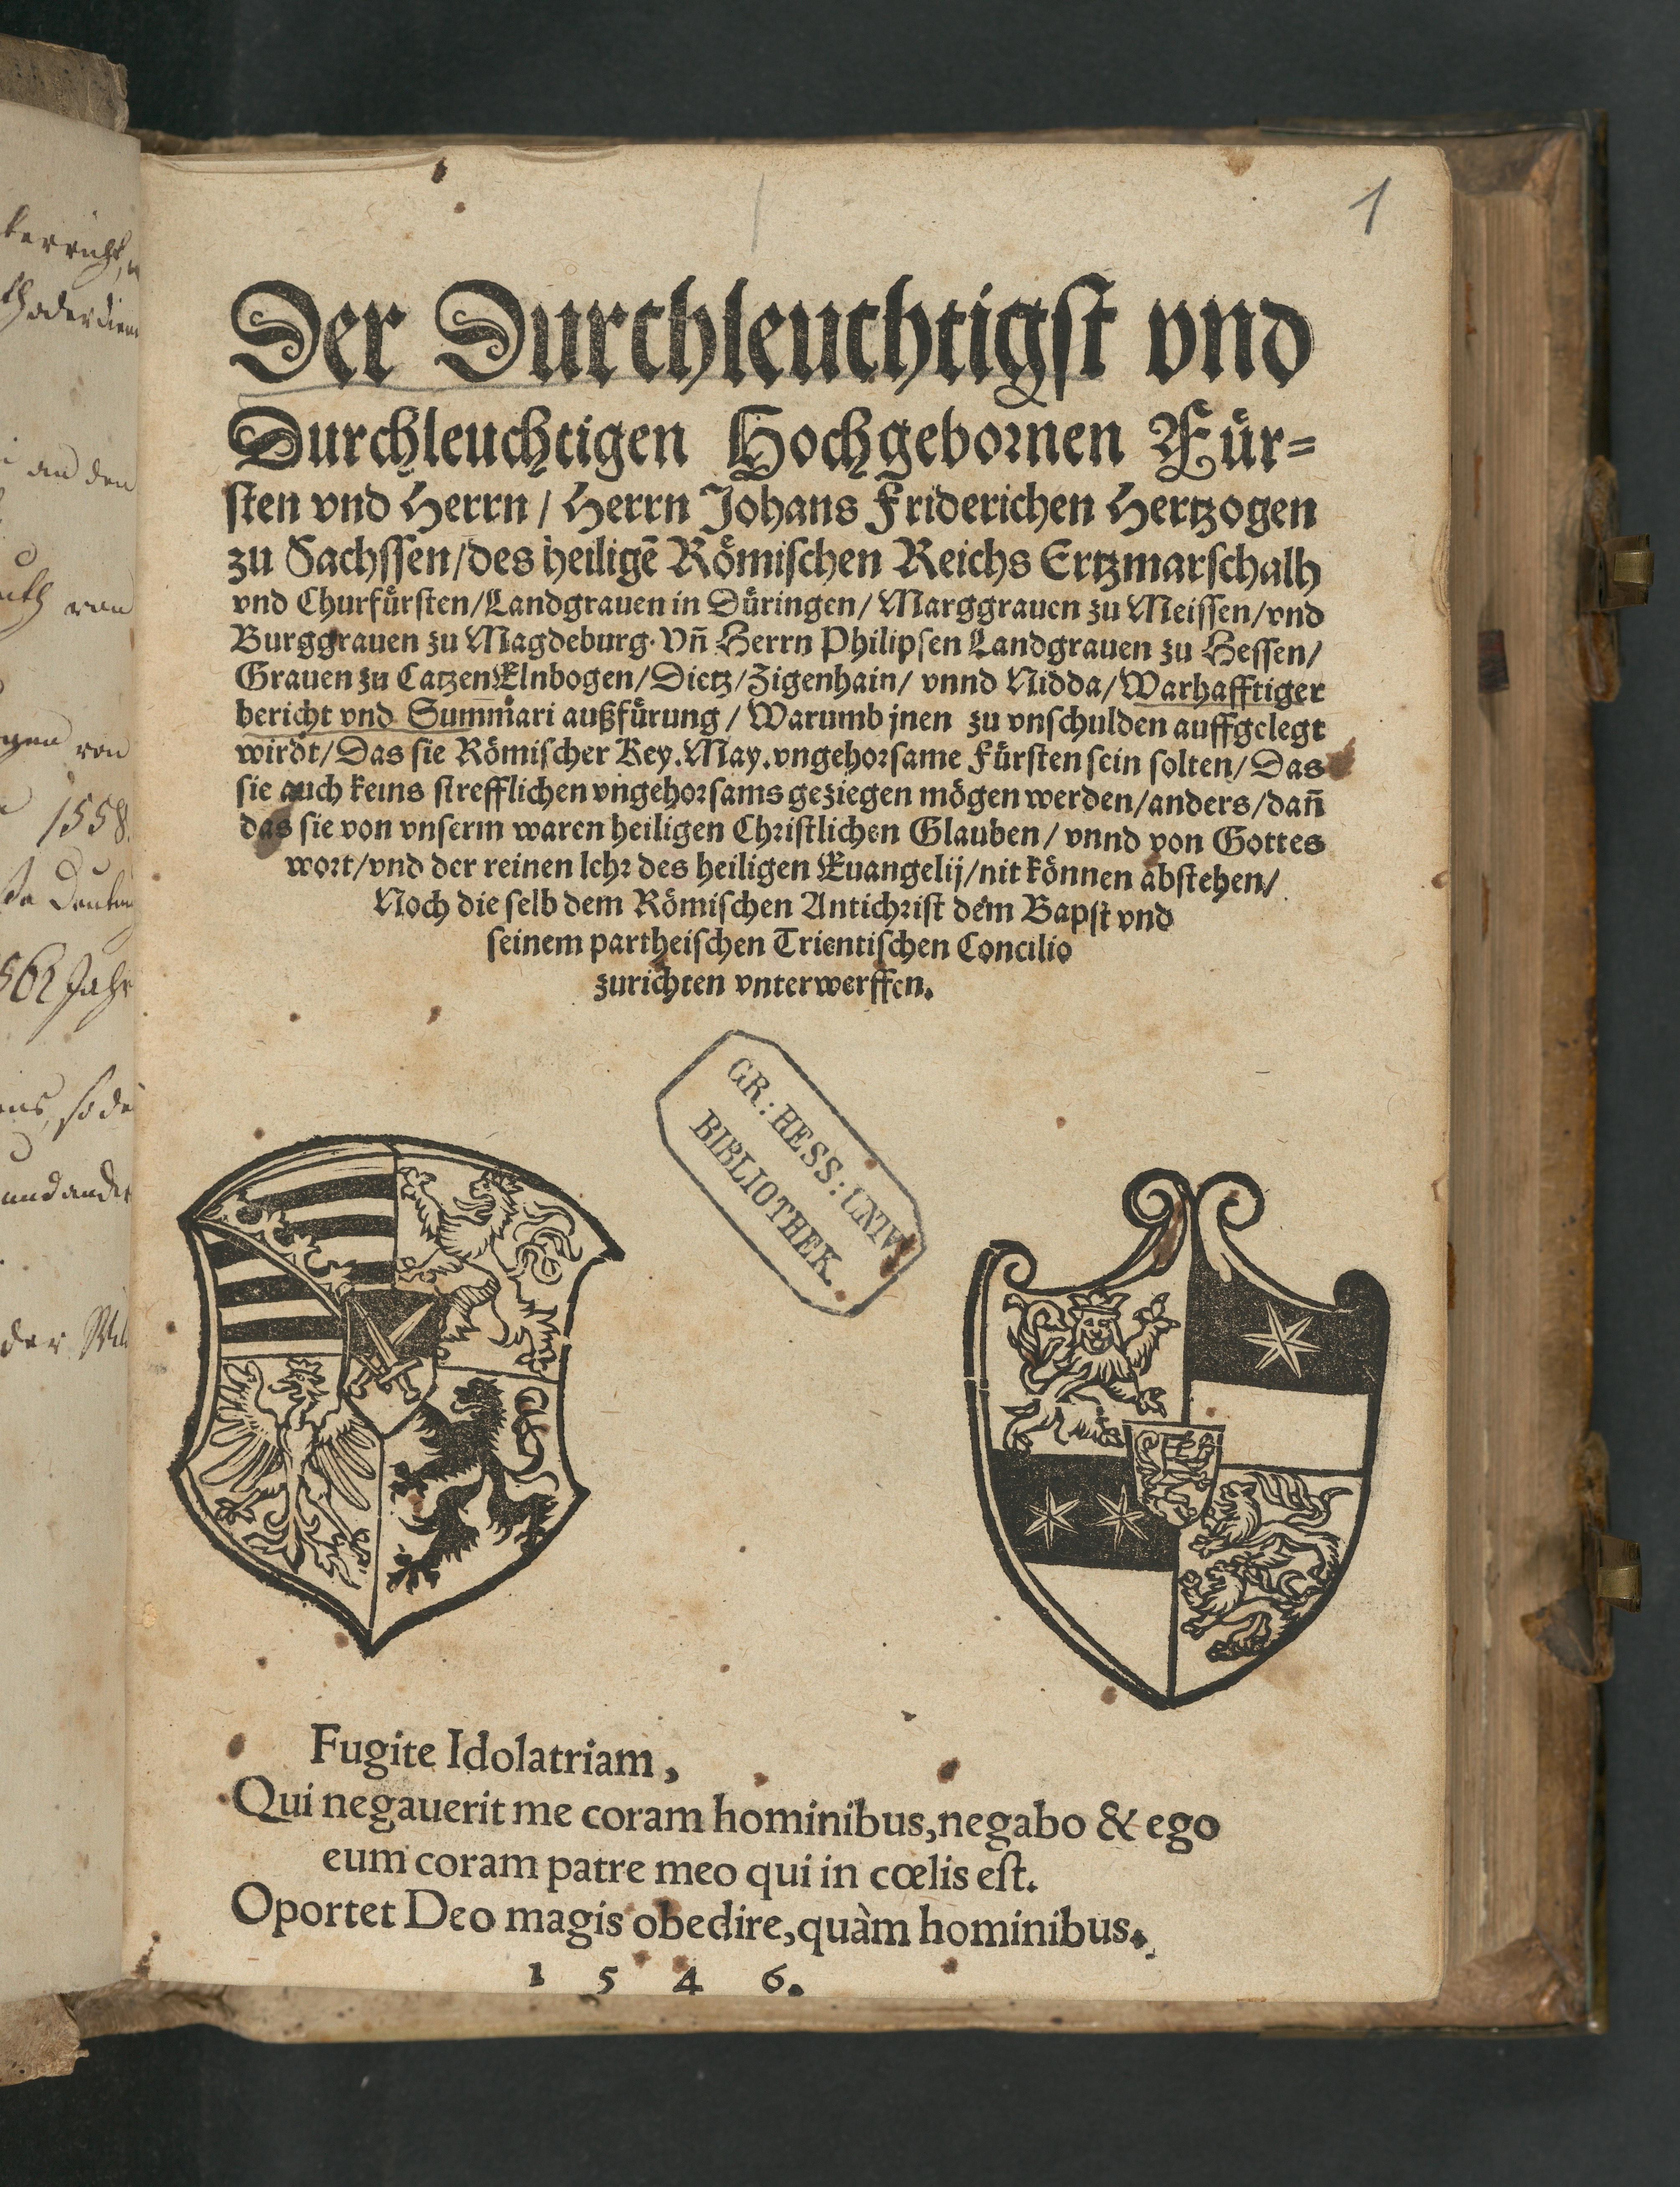 1
Der Durchleuchtigst vnd
Durchleuchtigen Hochgebornen Für-
sten vnd Herrn / Herrn Johans Friderichen Hertzogen
zu Sachssen/des heiligē Römischen Reichs Ertzmarschalh
vnd Churfürsten/Landgrauen in Düringen/Marggrauen zu Meissen/vnd
Burggrauen zu Magdeburg. Vñ Herrn Philipsen Landgrauen zu Hessen/
Grauen zu CatzenElnbogen/Dietz/Zigenhain/ vnnd Nidda/Warhafftiger
bericht vnd Summari außfürung / Warumb jnen zu vnschulden auffgelegt
wirdt/Das sie Römischer Key.May.vngehorsame Fürsten sein solten/Das
sie auch keins strefflichen vngehorsams geziegen mögen werden/anders/dañ
das sie von vnserm waren heiligen Christlichen Glauben/ vnnd von Gottes
wort/vnd der reinen lehr des heiligen Euangelij/nit können abstehen/
Noch die selb dem Römischen Antichrist dem Bapst vnd
seinem partheischen Trientischen Concilio
zurichten vnterwerffen.
GR: HESS: UNIV.
BIBLIOTHEK.
Fugite Idolatriam,
Qui negauerit me coram hominibus,negabo & ego
eum coram patre meo qui in cœlis est.
Oportet Deo magis obedire,quàm hominibus.
1 5 4 6.
an den
von
1558.
Jahr
der